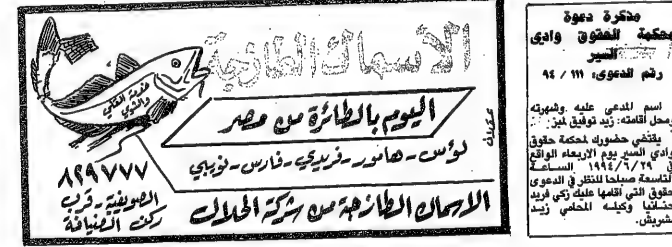 الأسماك الطازجة
خدمة القلي
والشوي
اليوم بالطائرة من مصر
لؤس - هامور - فريدي - فارس - نويبي
٨٢٩٧٧٧
الصويفية - قرب
ركن الضيافة
الاسماك الطازجة من شركة الحلال
مذكرة دعوة
محكمة الحقوق وادي
السير
رقم الدعوى: ١١١ / ٩٤
اسم المدعى عليه وشهرته
ومحل أقامته: زيد توفيق
يقتضي حضورك لمحكمة حقوق
وادي السير يوم الاربعاء الواقع
في ١٩٩٤/٦/٢٩ الساعة
التاسعة صباحا للنظر في الدعوى
حقوق التي أقامها عليك زكي فريد
وكيله المحامي زيد